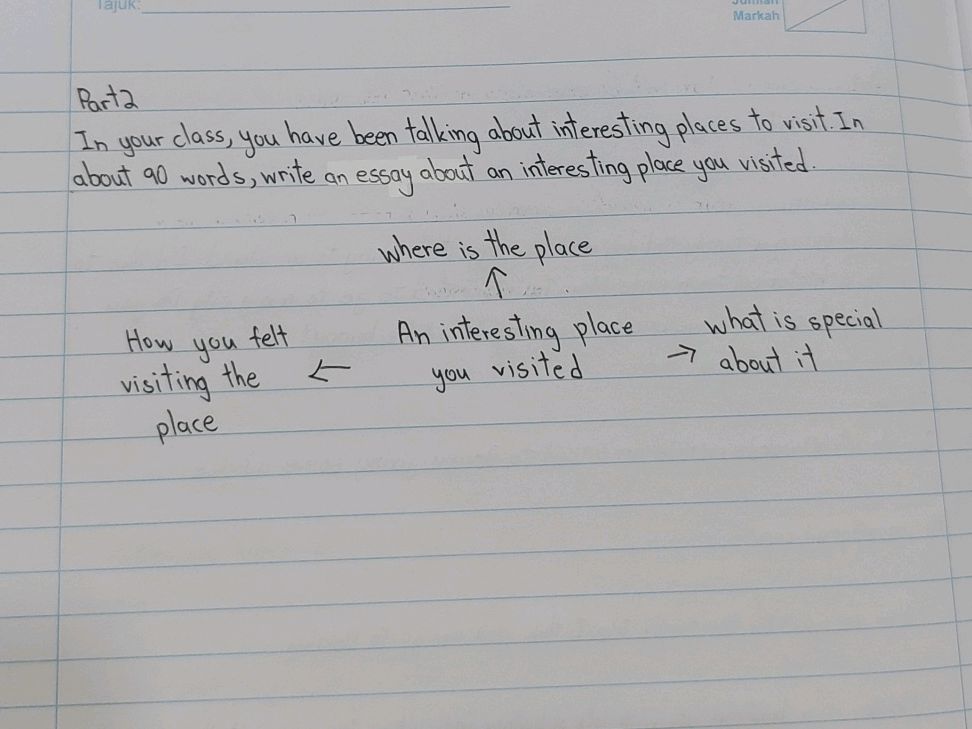 Tajuk:
Jumlah
Markah
Part 2
In your class, you have been talking about interesting places to visit. In
about 90 words, write an essay about an interesting place you visited.
where is the place
↑
How you felt
visiting the
place
←
An interesting place
you visited
→
what is special
about it